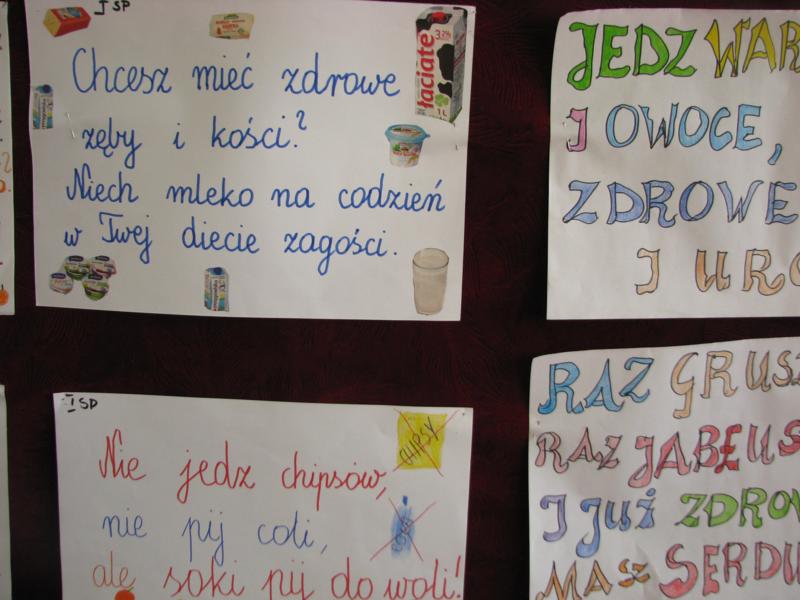 I SP
Chcesz mieć zdrowe
zęby i kości?
Niech mleko na codzień
w Twej diecie zagości.
łaciate
3,2%
1L
I SP
Nie jedz chipsów,
nie pij coli,
ale soki pij do woli!
CHIPSY
JEDZ WAR
I OWOCE,
ZDROWE
I URO
RAZ GRUSZ
RAZ JABŁUS
I JUŻ ZDROW
MASZ SERDU